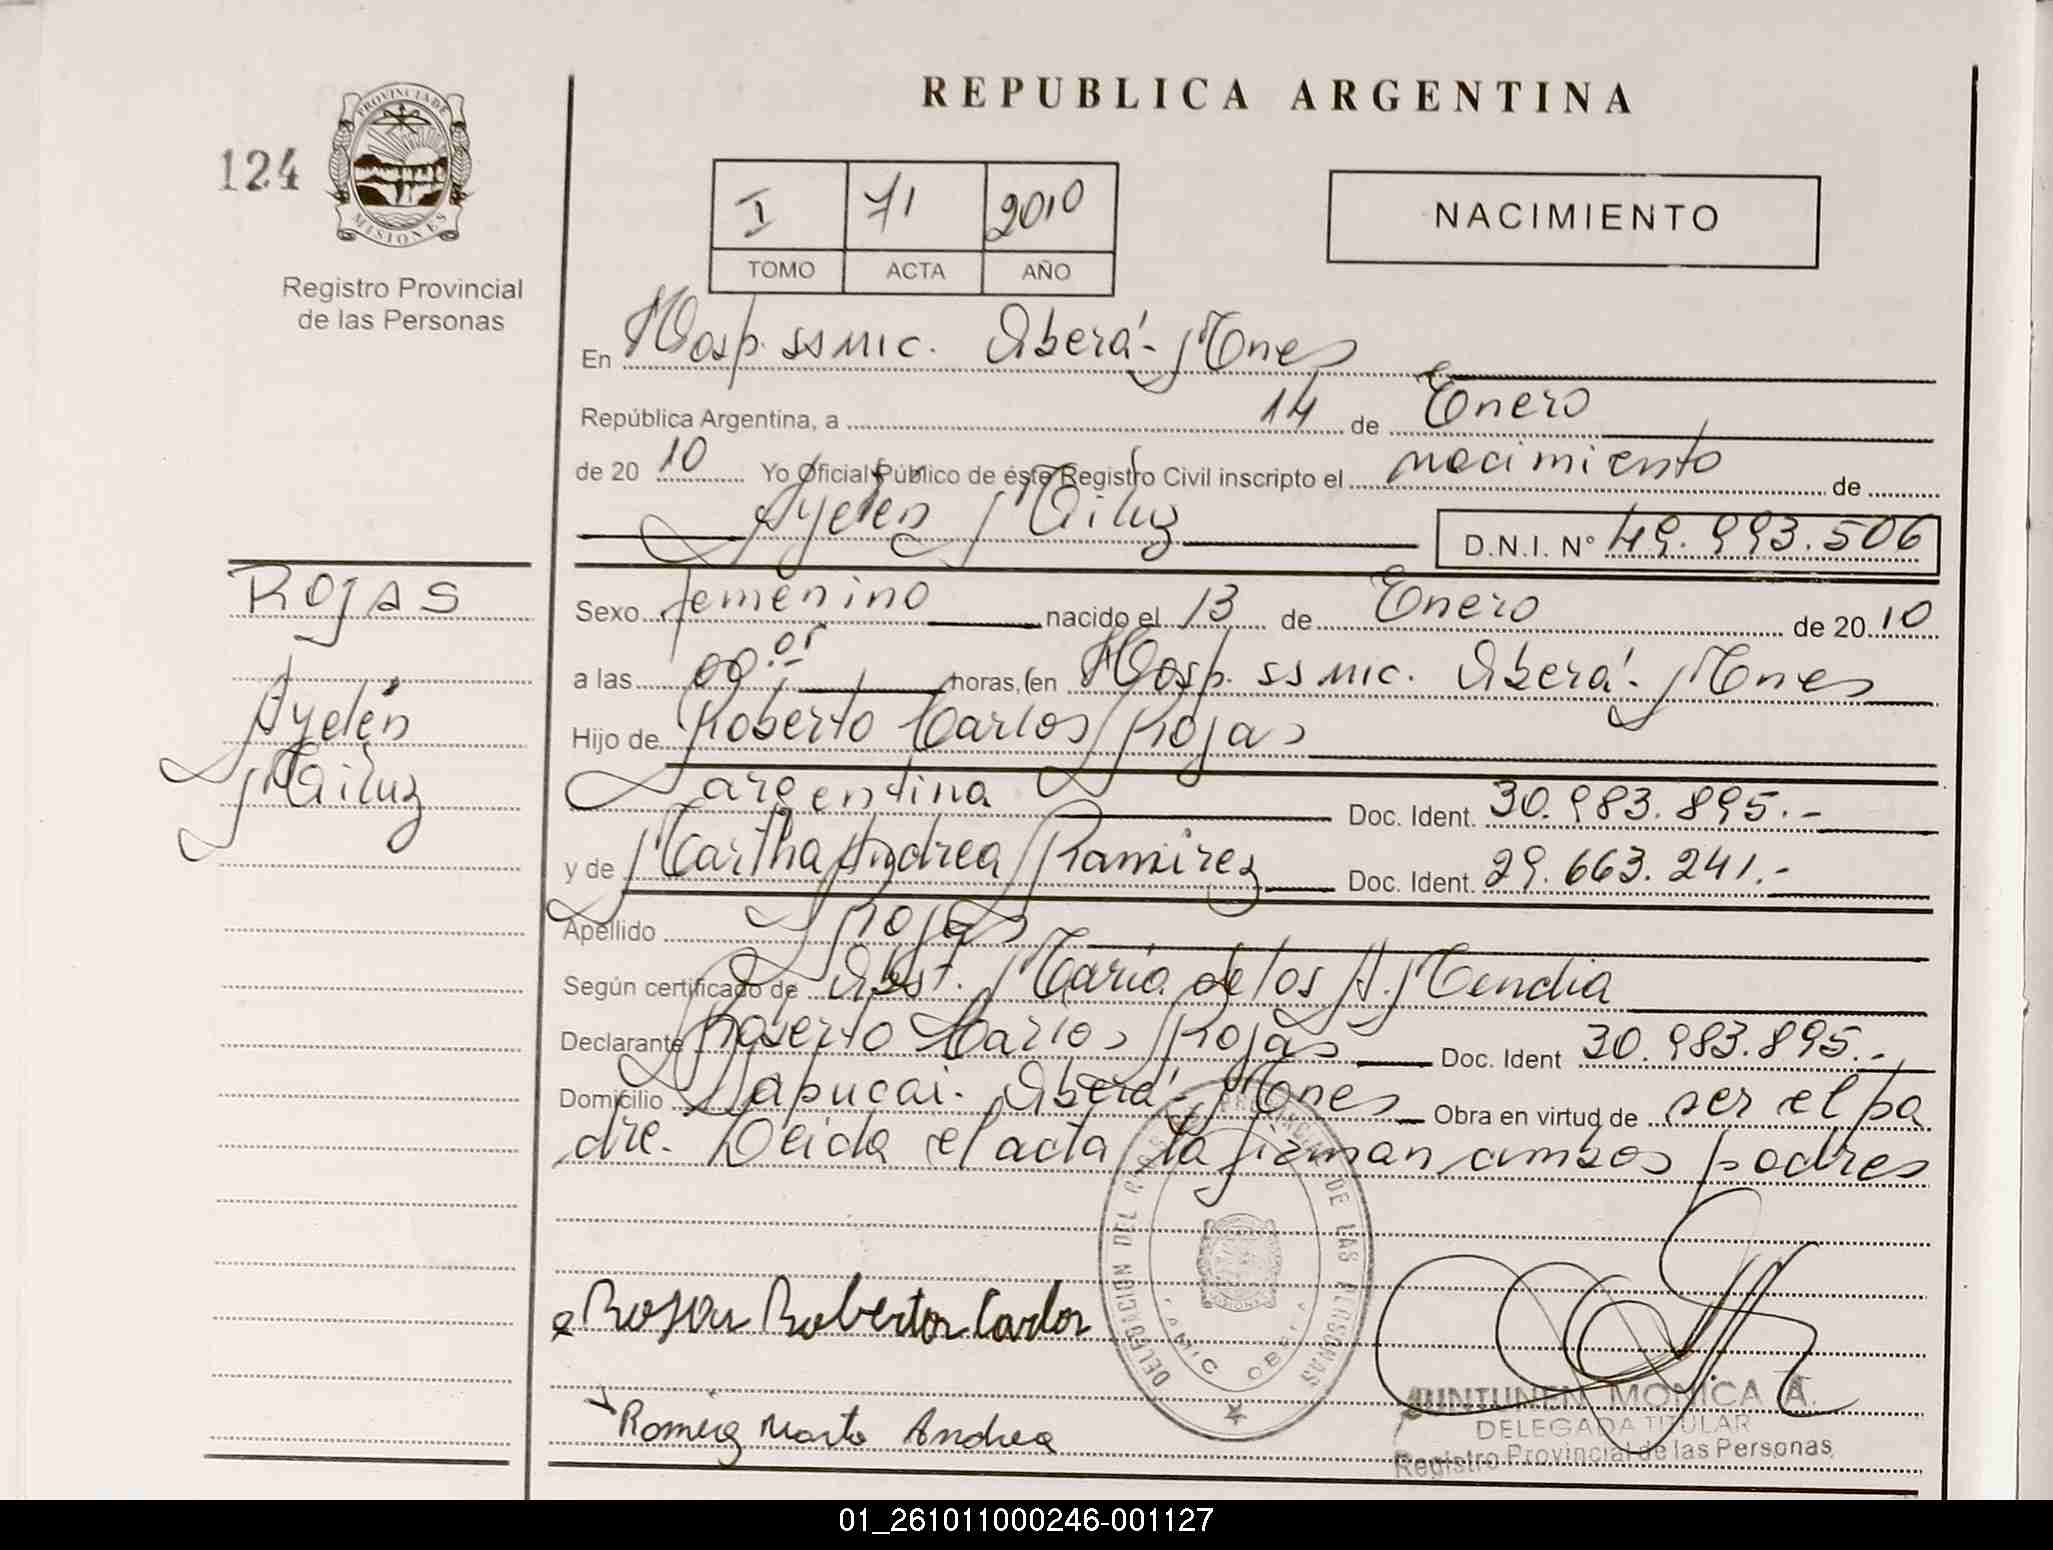 REPUBLICA ARGENTINA
124
PROVINCIA DE
MISIONES
Registro Provincial
de las Personas
I 71 2010
TOMO ACTA AÑO
NACIMIENTO
En Hosp. SSMIC. Oberá - Mnes
República Argentina, a 14 de Enero
de 2010 Yo Oficial Público de éste Registro Civil inscripto el nacimiento de
Ayelén Mailuz D.N.I. Nº 49.993.506
ROJAS
Ayelén
Mailuz
Sexo femenino nacido el 13 de Enero de 2010
a las 00:05 horas, en Hosp. SSMIC. Oberá - Mnes
Hijo de Roberto Carlos Rojas
argentina Doc. Ident. 30.983.895.-
y de Martha Andrea Ramirez Doc. Ident. 29.663.241.-
Apellido Rojas
Según certificado de Obst. María de los A. Mendia
Declarante Roberto Carlos Rojas Doc. Ident 30.983.895.-
Domicilio Sapucai. Oberá - Mnes Obra en virtud de ser el pa
dre. Leida el acta la firman ambos padres
DELEGACION DEL PROVINCIAL DE LAS PERSONAS
Rojas Roberto Carlos
Marta Andrea
JUNTUNEN MONICA A.
DELEGADA TITULAR
Registro Provincial de las Personas
01_261011000246-001127